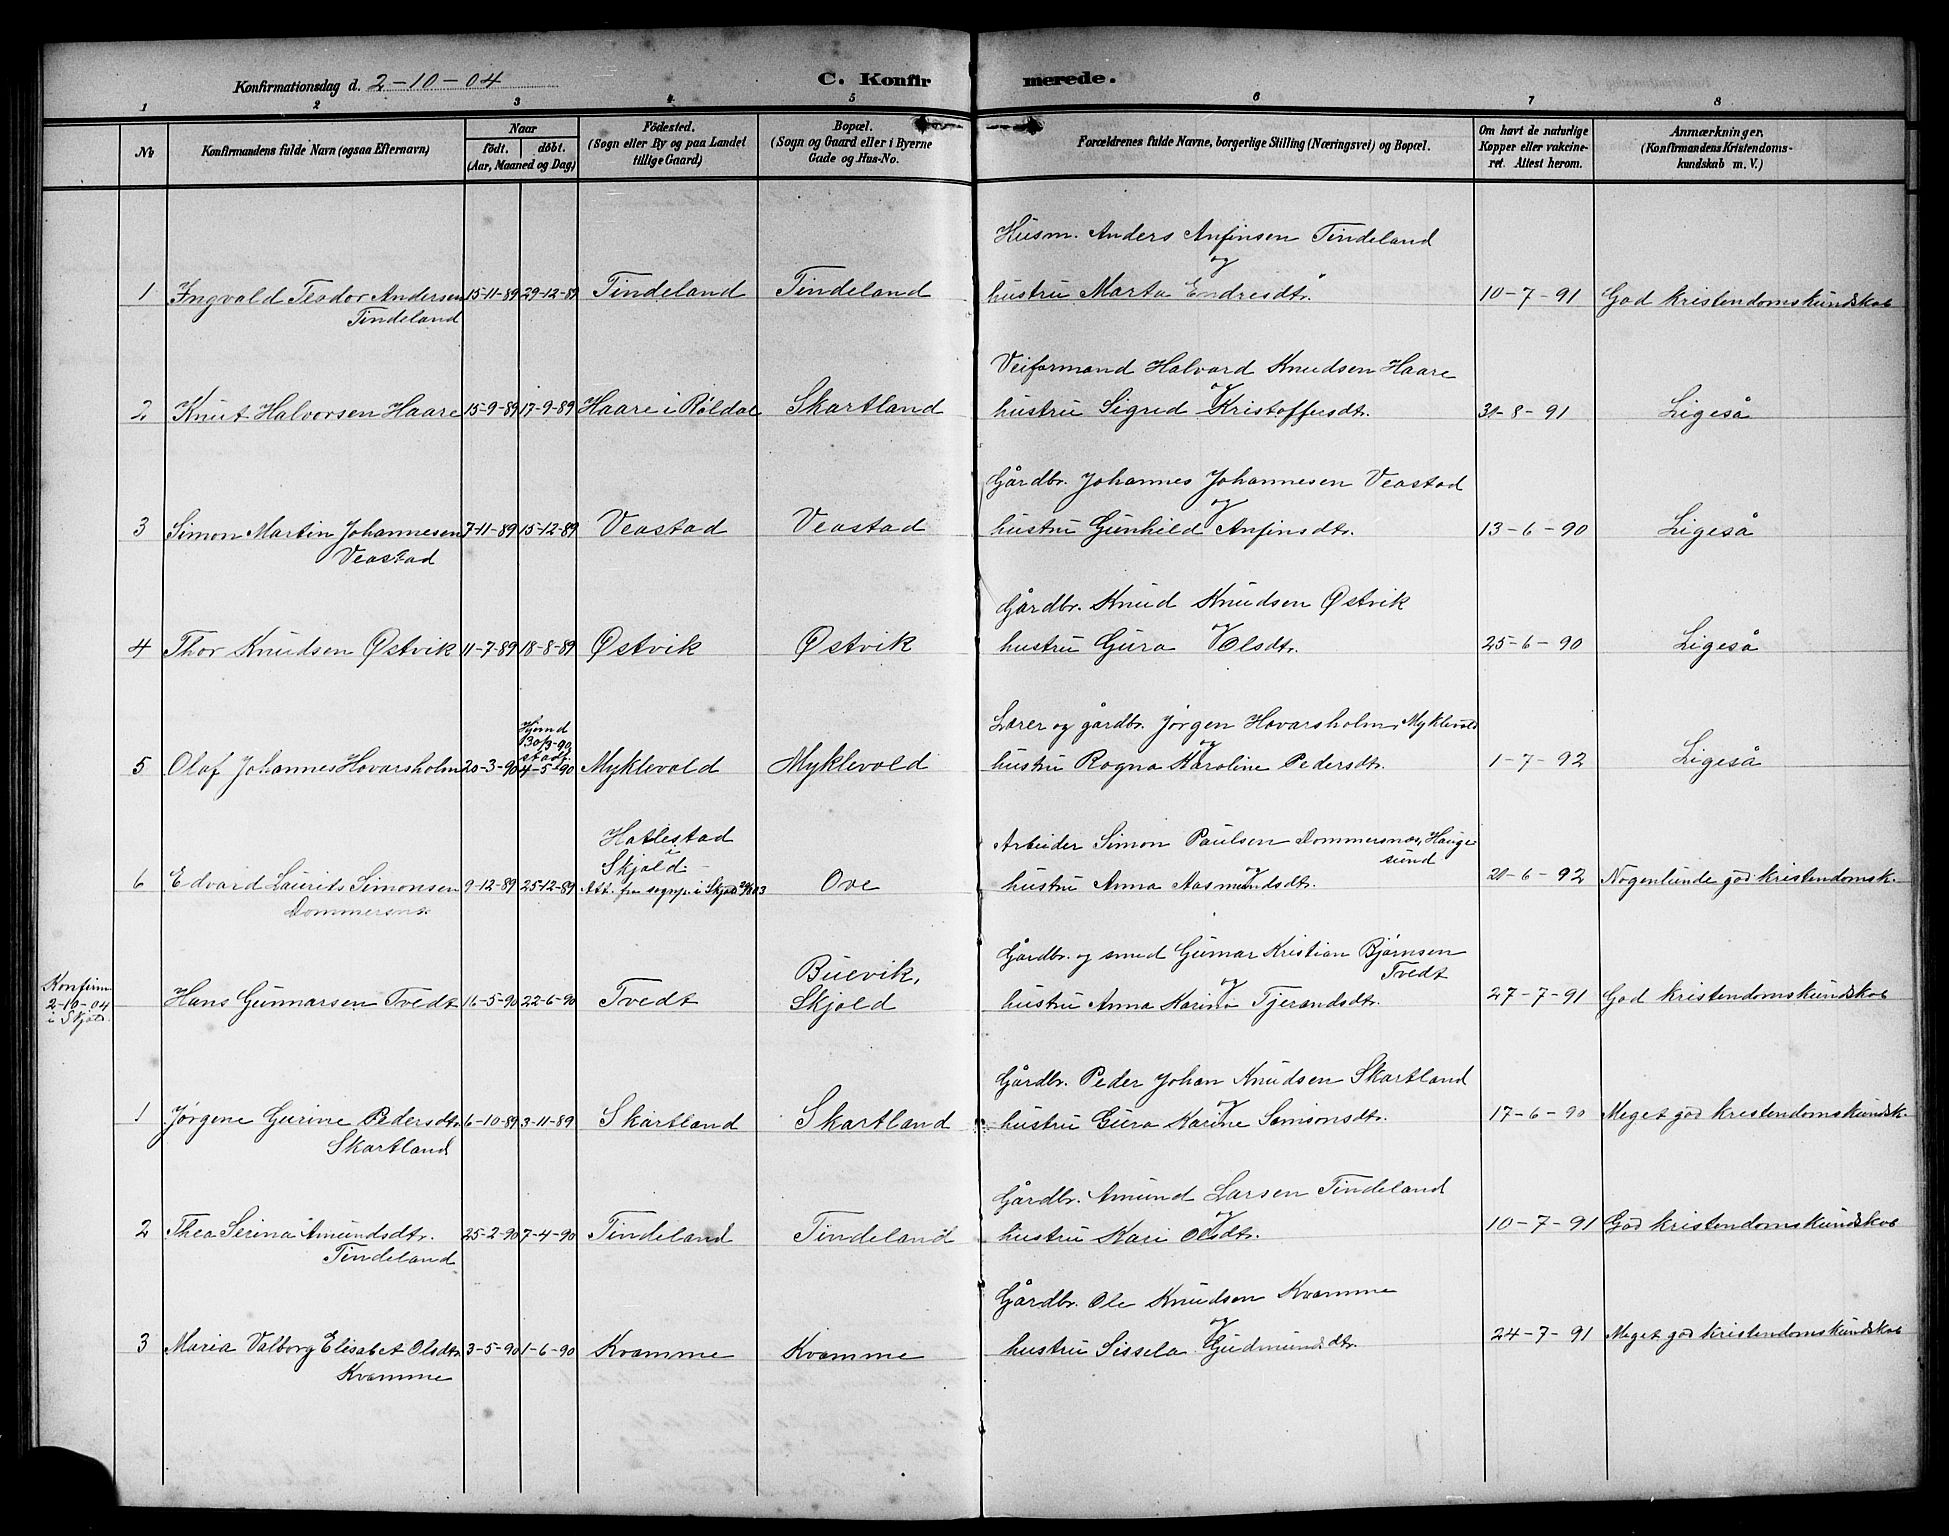 Konfirmationsdag d. 2-10-04
C. Konfir
merede.
1 2 3 4 5 6 7 8
No
Konfirmandens fulde Navn (ogsaa Efternavn)
Naar
født. døbt.
(Aar, Maaned og Dag)
Fødested.
(Sogn eller By og paa Landet
tillige Gaard)
Bopæl.
(Sogn og Gaard eller i Byerne
Gade og Hus-No.
Forældrenes fulde Navne, borgerlige Stilling (Næringsvei) og Bopæl.
Om havt de naturlige
Kopper eller vakcine-
ret. Attest herom.
Anmærkninger.
(Konfirmandens Kristendoms-
kundskab m. V.)
Husm. Anders Anfinsen Tindeland
og
1 Ingvald Teodor Andersen 15-11-89 29-12-89 Tindeland Tindeland hustru Marta Endresdtr. 10-7-91 God kristendomskundskab
Tindeland
Veiformand Halvard Knudsen Haare
og
2 Knut Halvorsen Haare 15-9-89 17-9-89 Haare i Røldal Skartland hustru Sigrid Kristoffersdtr. 31-8-91 Ligeså
Gårdbr. Johannes Johannesen Veastad
og
3 Simon Martin Johannesen 7-11-89 15-12-89 Veastad Veastad hustru Gunhild Anfinsdtr. 13-6-90 Ligeså
Veastad
Gårdbr. Knud Knudsen Østvik
og
4 Thor Knudsen Østvik 11-7-89 18-8-89 Østvik Østvik hustru Gura Olsdtr. 25-6-90 Ligeså
Lærer og gårdbr. Jørgen Hovarsholm, Myklevold
og
Hjemd
30/3-90,
stadf.
5 Olaf Johannes Hovarsholm 20-3-90 4-5-90 Myklevold Myklevold hustru Ragna Karoline Pedersdtr. 1-7-92 Ligeså
Hatlestad
i
Skjold.
Arbeider Simon Paulsen Dommersnes, Hauge-
sund
og
6 Edvard Laurits Simonsen 9-12-89 25-12-89 Att. fra sognep. i Skjold Ove hustru Anna Aasmundsdtr. 21-6-92 Nogenlunde god kristendomsk.
Dommersnes
Gårdbr. og smed Gunnar Kristian Bjørnsen
Tvedt
og
Konfirm.
2-10-04
i Skjold.
Buevik,
Hans Gunnarsen Tvedt 16-5-90 22-6-90 Tvedt Skjold hustru Anna Karina Tjerandsdtr. 27-7-91 God kristendomskundskab
Gårdbr. Peder Johan Knudsen Skartland
og
1 Jørgene Gurine Pedersdtr. 6-10-89 3-11-89 Skartland Skartland hustru Gura Karine Samsonsdtr. 17-6-90 Meget god kristendomskundsk.
Skartland
Gårdbr. Amund Larsen Tindeland
og
2 Thea Serina Amundsdtr. 25-2-90 7-4-90 Tindeland Tindeland hustru Kari Olsdtr. 10-7-91 God kristendomskundskab
Tindeland
Gårdbr. Ole Knudsen Kvamme
og
3 Maria Valborg Elisabet Olsdtr. 3-5-90 1-6-90 Kvamme Kvamme hustru Sissela Gudmundsdtr. 24-7-91 Meget god kristendomskundskab
Kvamme